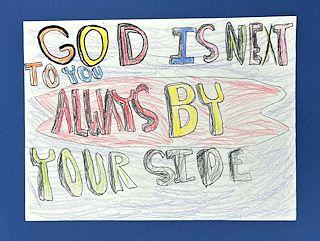 GOD IS NEXT
TO YOU
ALWAYS BY
YOUR SIDE